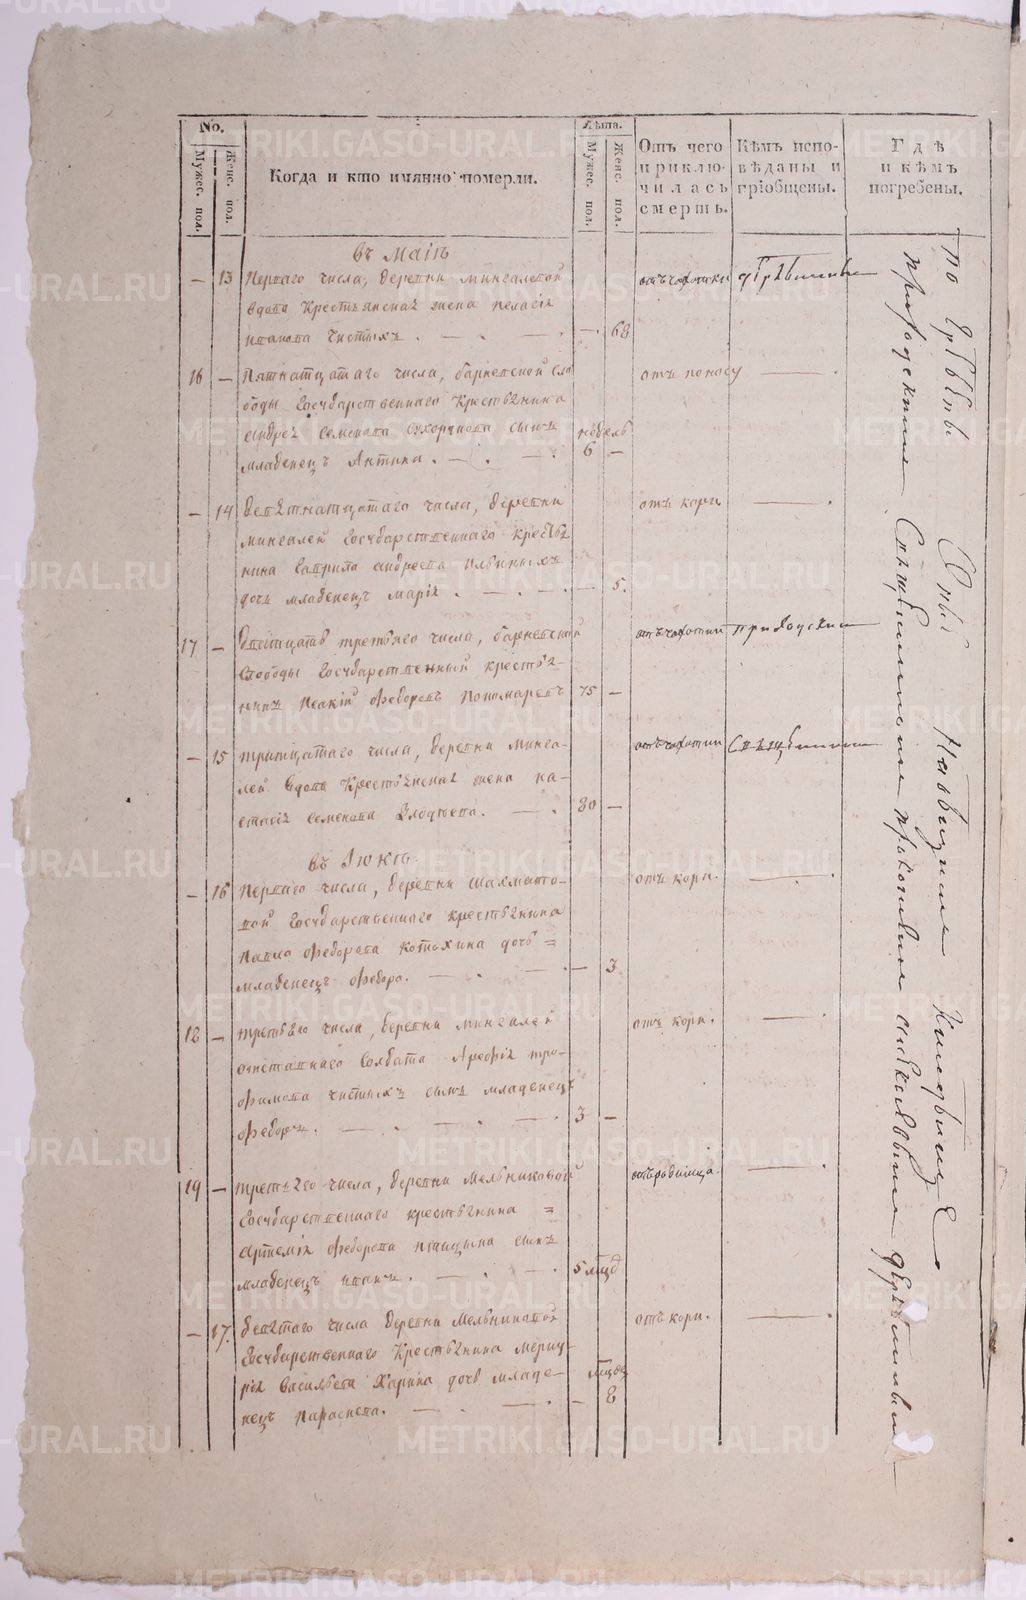 No.
Мужес. пол.
Женс. пол.
Когда и кто имянно померли.
Лѣта.
Мужес. пол.
Женс. пол.
Отъ чего приключилась смерть.
Кѣмъ исповѣданы и пріобщены.
Гдѣ и кѣмъ погребены.
въ Маіѣ
— 13 Перваго числа, деревни мингалевой
вдова Крестьянская жена пелагія
иванова Чистыхъ. — 68
отъ чахотки
16 — Пятнатцатаго числа, барневской сло
боды Государственнаго Крестьянина
андрея семенова сынъ
младенецъ Антипа. недель 6 —
отъ поносу
— 14 девятнатцатаго числа, деревни
мингалей Государственнаго крестья
нина гаврила андреева Ильиныхъ
дочь младенецъ марія. — 5.
отъ кори
17 — дватцать третьяго числа, барневской
слободы Государственный крестья-
нинъ Исакій Федоровъ Пономаревъ 75 —
отъ чахотки приходскимъ
— 15 тритцатаго числа, деревни минга-
лей вдова Крестьянская жена на-
стасія семенова 80 —
отъ чахотки Священникомъ
въ Іюнѣ
— 16 Перваго числа, деревни шахмато-
вой Государственнаго крестьянина
павла Федорова Котюхина дочь =
младенецъ Федора. — 3
отъ кори.
18 — третьяго числа, деревни мингалей
отставнаго Солдата Арефія тро-
фимова чистыхъ сынъ младенецъ
Федоръ. 3 —
отъ кори.
19 — третьяго числа, деревни Мельниковой
Государственнаго крестьянина =
артемія Федорова птицына сынъ
младенецъ иванъ. 5 мцд
отъ родимца.
— 17. девятаго числа деревни Мельниковой
Государственнаго Крестьянина
Васильева Харина дочь младе-
нецъ Параскева. — мцов 8
отъ кори.
приходскимъ Священникомъ
METRIKI.GASO-URAL.RU